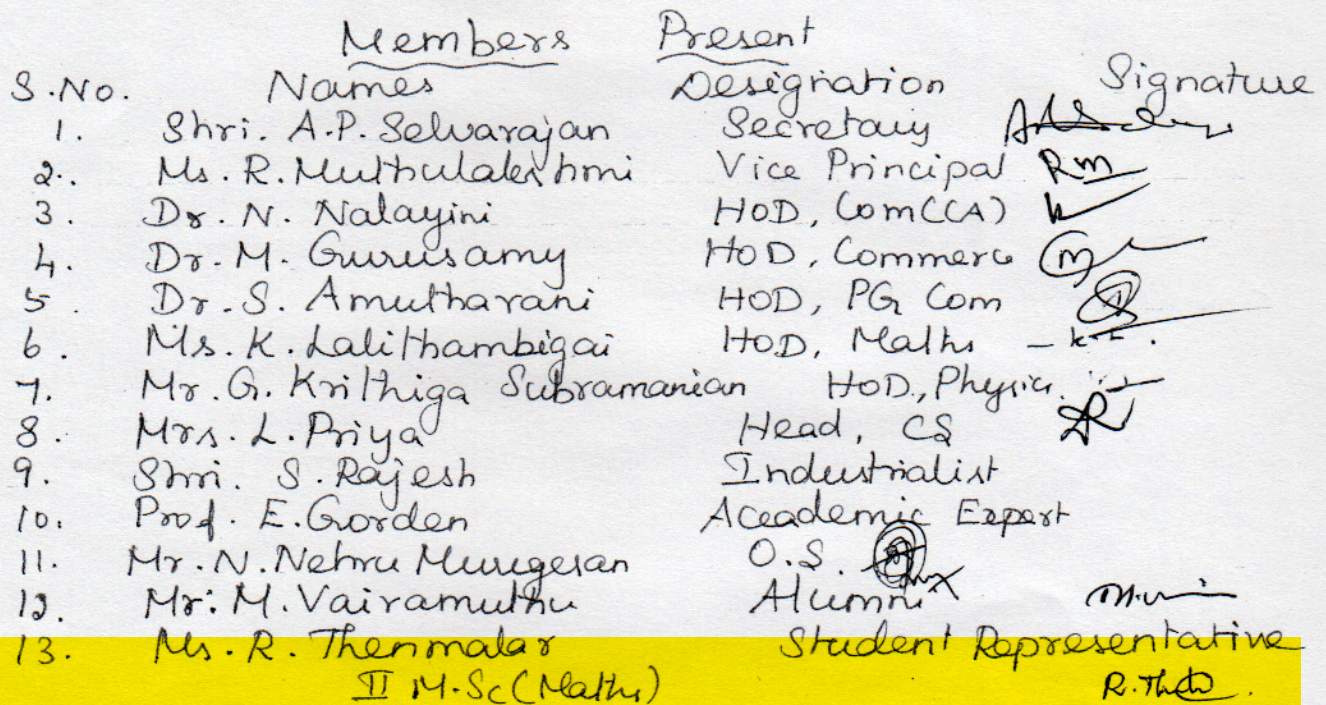 Members Present
S.No. Names Designation Signature
1. Shri. A.P. Selvarajan Secretary
2. Ms. R. Muthulakshmi Vice Principal Rm
3. Dr. N. Nalayini HoD, Com(CA)
4. Dr. M. Gurusamy HoD, Commerce
5. Dr. S. Amutharani HoD, PG Com
6. Ms. K. Lalithambigai HoD, Maths
7. Mr. G. Krithiga Subramanian HoD, Physics
8. Mrs. L. Priya Head, CS
9. Shri. S. Rajesh Industrialist
10. Prof. E. Gorden Aceademic Expert
11. Mr. N. Nehru Murugesan O.S.
12. Mr. M. Vairamuthu Alumni
13. Ms. R. Thenmalar Student Representative
II M.Sc (Maths)